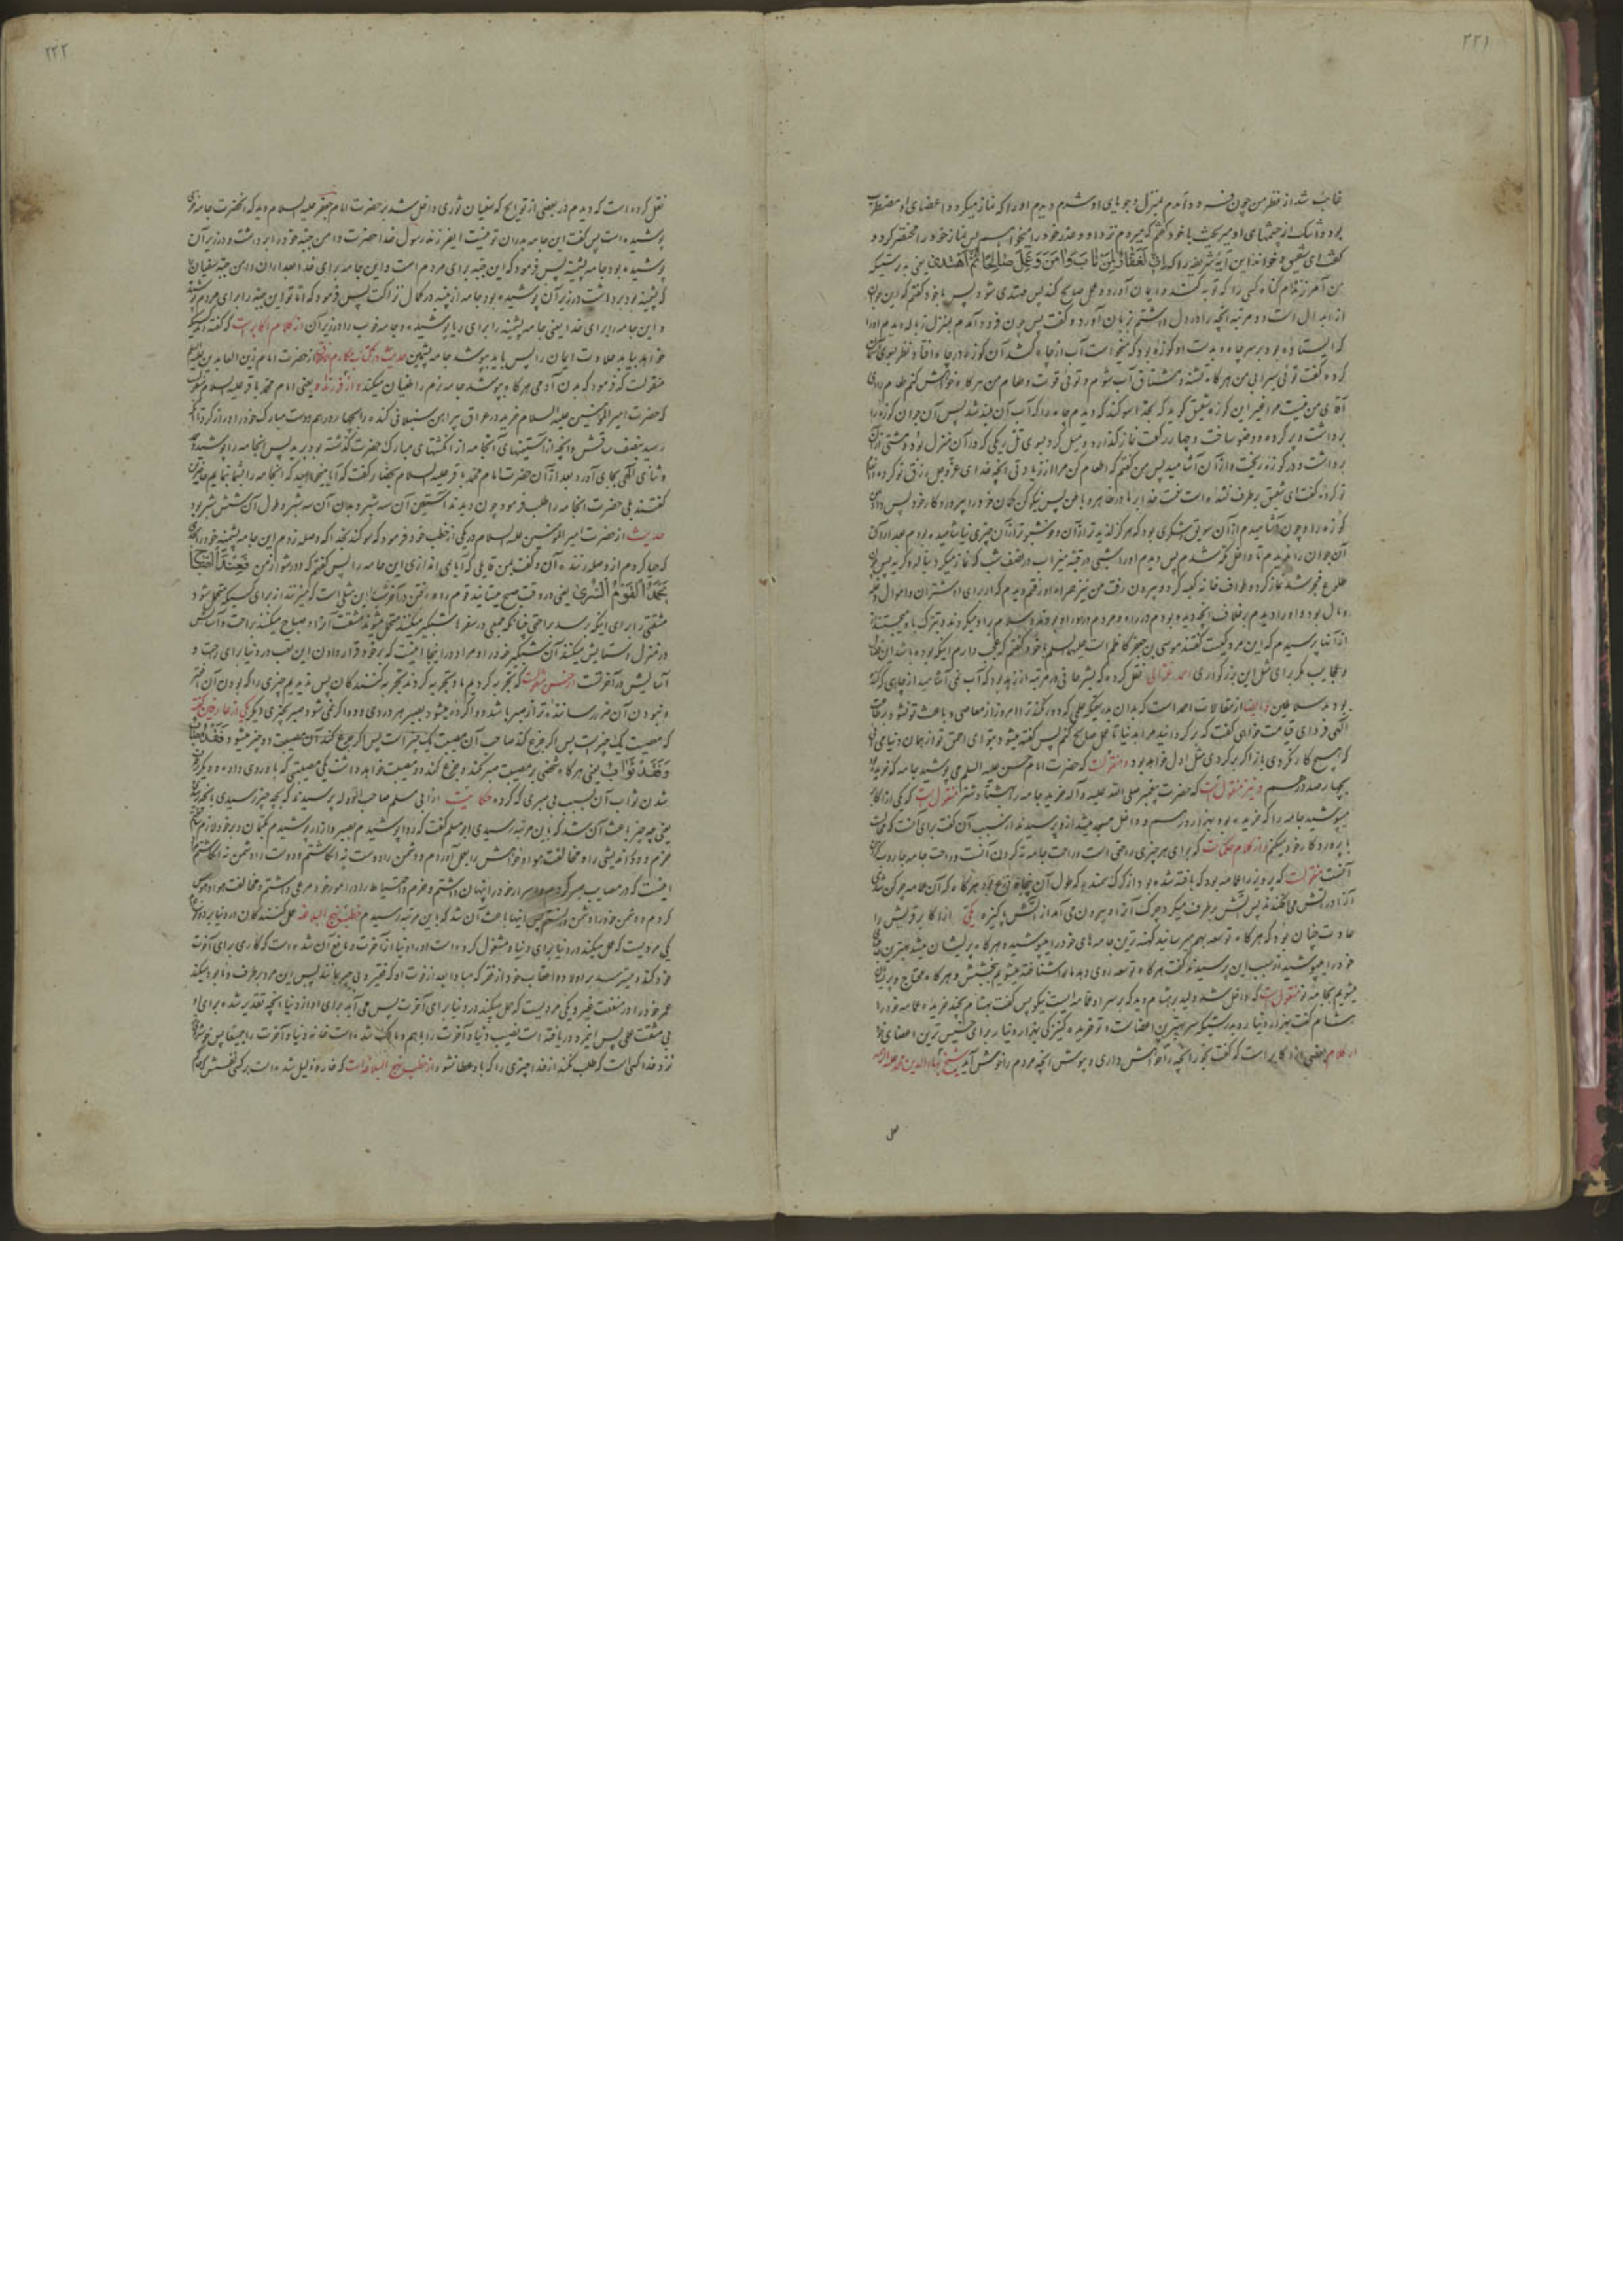 ۲۲۱
غایب شد از نظر من چون فرود آمدم بمنزل و جویای او شدم دیدم او را که نماز میکرد و اعضای او مضطرب
بود و اشک از چشمهای او میریخت با خود گفتم که میروم نزد او و عذر خود را میخواهم پس نماز خود را مختصر کرد و
گفت ای شقیق و خواند این آیه شریفه را که اِنّی لَغَفّارٌ لِمَن تابَ وَ امَنَ وَ عَمِلَ صالِحاً ثُمَّ اهتَدی یعنی بدرستیکه
من آمرزنده‌ام گناه کسی را که توبه کند و ایمان آورد و عمل صالح کند پس مهتدی شود پس با خود گفتم که این جوان
از ابدال است دو مرتبه آنچه را در دل داشتم بزبان آورد و گفت پس چون فرود آمدم بمنزل زباله دیدم او را
که ایستاده بود بر سر چاه و بدست او کوزه بود که میخواست آب از چاه کشد آن کوزه در چاه افتاد نظر بسوی آسمان
کرد و گفت توئی سیرابی من هر گاه تشنه و مشتاق آب شوم و توئی قوت و طعام من هر گاه خواهش کنم طعام را ای
آقای من نیست مرا غیر این کوزه شقیق گوید که بخدا سوگند که دیدم چاه را که آب آن بلند شد پس آن جوان کوزه را
برداشت و پر کرد و وضو ساخت و چهار رکعت نماز گذارد و میل کرد بسوی تل ریگی که در آن منزل بود و مشتی از آن
برداشت و در کوزه ریخت و از آن آشامید پس من گفتم که اطعام کن مرا از زیادتی آنچه خدای عز و جل رزق تو کرده
تو کرده گفت ای شقیق بر طرف نشده است نعمت خدا بر ما در ظاهر و باطن پس نیکو کن گمان خود را بپروردگار خود پس داد بمن
کوزه را و چون آشامیدم از آن سویق و شکری بود که هرگز لذیذتر از آن و خوشبوتر از آن چیزی نیاشامیده بودم بعد از آن
آن جوان را ندیدم تا داخل مکه شدم پس دیدم او را شبی در قبه میزاب در نصف شب که نماز میکرد با ناله و گریه پس چون
طلوع فجر شد نماز کرد و طواف خانه کعبه کرد و بیرون رفت من نیز همراه او رفتم دیدم که او را برای او شتران و اموال و
و مال بود و او را دیدم بر خلاف آنچه دیده بودم در راه و مردم دور او بودند و سلام بر او میکردند و تبرک باو میجستند
از آنها پرسیدم که این مرد کیست گفتند موسی بن جعفر کاظم است علیه السلام با خود گفتم که عجب دارم اینکه بوده باشد این
و عجایب مگر برای مثل این بزرگواری احمد غزالی نقل کرده که بشر حافی در مرتبه از زهد بود که آب نمی آشامید از چاهی که کنده
بودند سلاطین و ایضا از مقالات احمد است که بدان بدرستیکه علمی که دور نکند ترا امروز از معاصی و باعث تو نشود بر طاعت
الهی فردای قیامت خواهی گفت که برگردانید مرا بدنیا تا عمل صالح کنم پس گفته میشود بتو ای احمق تو از همان دنیا می آئی
که هیچ کار نکردی باز اگر برگردی مثل اول خواهد بود و منقولست که حضرت امام حسن علیه السلم می پوشید جامه که خریده
بچهار صد درهم و نیز منقولست که حضرت پیغمبر صلی الله علیه و آله خرید جامه را بهشتاد شتر منقولست که یکی از اکابر
میپوشید جامه را که خریده بود بهزار درهم و داخل مسجد میشد از او پرسیدند از سبب آن گفت برای آنست که مجالست
با پروردگار خود میکنم و از کلام حکماست که برای هر چیزی راحتی است و راحت جامه ته کردن آنست و راحت خانه جاروب کردن
آنست منقولست که پرویز را عمامه بود که بافته شده بود از کرک سمندر که طول آن پنجاه ذرع بود هر گاه که آن عمامه چرکن شدی
آنرا در آتش می افکندند پس آتش بر طرف میکرد چرک آنرا و بیرون می آمد از آتش پاکیزه یکی از اکابر قریش را
عادت چنان بود که هر گاه توسعه بهم میرسانید کهنه ترین جامه های خود را میپوشید و هر گاه پریشان میشد بهترین جامه
خود را میپوشید از سبب این پرسیدند گفت هر گاه توسعه روی دهد ما را شناخته میشویم ببخشش و هر گاه محتاج و پریشان
میشویم بجامه نو منقولست که داخل شد ولید بر هشام و دید که بر سر او عمامه ایست نیکو پس گفت بهشام بچند خریده عمامه خود را
هشام گفت بهزار دینار و بدرستیکه سر بهترین اعضاست و تو خریده کنیزکی بهزار دینار برای خسیس ترین اعضای خود
از کلام بعضی از اکابر است که گفت بخور آنچه را خواهش داری و بپوش آنچه مردم را خوش آید شیخ بهاءالدین محمد
۲۲۲
نقل کرده است که دیدم در بعضی از تواریخ که سفیان ثوری داخل شد بر حضرت امام جعفر علیه السلام دید که آنحضرت جامه
پوشیده است پس گفت این جامه پدران تو نیست ای فرزند رسول خدا حضرت دامن جبه خود را برداشت و در زیر آن
پوشیده بود جامه پشمینه پس فرمود که این جبه برای مردم است و این جامه برای خدا بعد از آن دامن جبه سفیان را
که پشمینه بود برداشت در زیر آن پوشیده بود جامه از پنبه در کمال نزاکت پس فرمود که اما تو این جبه را برای مردم
و این جامه را برای خدا یعنی جامه پشمینه را برای ریا پوشیده و جامه خوب را در زیر آن از کلام اکابر است که گفته اند کسیکه
خواهد بیابد حلاوت ایمان را پس باید بپوشد جامه پشمین حدیث در کتاب مکارم اخلاق از حضرت امام زین العابدین علیه السلم
منقولست که فرمود که بدن آدمی هر گاه بپوشد جامه نرم را طغیان میکند و از فرزند او یعنی امام محمد باقر علیه السلام منقولست
که حضرت امیر المؤمنین علیه السلام خرید در عراق پیراهن سنبلانی کنده را بچهار درهم و دست مبارک خود را دراز کرد
رسید بنصف ساقش و آنچه از آستینهای آنجامه از انگشتهای مبارک حضرت گذشته بود برید پس آنجامه را پوشید و
و ثنای الهی بجای آورد بعد از آن حضرت امام محمد باقر علیه السلام بحضار گفت که آیا میخواهید که آنجامه را بشما نمایم حاضرین
گفتند بلی حضرت آنجامه را طلب فرمود چون دیدند آستین آن سه شبر و بدن آن سه شبر و طول آن شش شبر بود
حدیث از حضرت امیر المؤمنین علیه السلام در یکی از خطب خود فرمود که سوگند بخدا که وصله زدم این جامه پشمینه خود را
که حیا کردم از وصله زننده آن و گفت بمن قایلی که آیا نمی اندازی این جامه را پس گفتم که دور شو از من فَعِندَ الصَّباحِ
یَحمَدُ القَومُ السُّری یعنی در وقت صبح میستایند قوم راه رفتن در آخر شب را این مثلی است که میزنند از برای کسیکه متحمل شود
مشقتی را برای اینکه برسد براحتی چنانکه جمعی در سفرها شبگیر میکنند متحمل میشوند مشقت آنرا و صباح میکنند براحت و آسایش
در منزل و ستایش میکنند آن شبگیر خود را و مراد در اینجا اینست که بر خود قرار دادن این تعب در دنیا برای راحت و
آسایش در آخرتست از حسن منقولست که تجربه کردیم ما و تجربه کردند تجربه کنندگان پس ندیدیم چیزی را که بودن آن
و نبودن آن ضرر رساننده تر از صبر باشد دوا کرده میشود بصبر هر دردی و دوا کرده نمی شود صبر بچیزی دیگر یکی از عارفین گفته
که مصیبت یک چیز است پس اگر جزع کند صاحب آن مصیبت یک چیز است پس اگر جزع کند آن مصیبت دو چیز میشود فَقدُ مُصابٍ
وَ فَقدُ ثَوابٍ یعنی هر گاه شخصی بر مصیبت صبر نکند و جزع کند دو مصیبت خواهد داشت یکی مصیبتی که باو روی داده و دیگر
شدن ثواب آن بسبب بی صبری که کرده حکایت از ابی مسلم صاحب الدوله پرسیدند که بچه چیز رسیدی بآنچه رسیدی
یعنی چه چیز باعث آن شد که باین مرتبه رسیدی ابو مسلم گفت که ردا پوشیدم بصبر و ازار پوشیدم بکتمان و بر خود لازم
حزم و دوراندیشی را و مخالفت هوا و خواهش را بعمل آوردم و دشمن را دوست نه انگاشتم و دوست را دشمن نه انگاشتم
اینست که در مصایب صبر کردم و اسرار خود را پنهان داشتم و حزم و احتیاط را در امور خود مرعی داشتم و مخالفت هوا و هوس
کردم و دشمن خود را دشمن دانستم پس اینها باعث آن شد که باین مرتبه رسیدم خطب نهج البلاغه عمل کنندگان در دنیا بر دو نوعند
یکی مردیست که عمل میکند در دنیا برای دنیا و مشغول کرده است او را دنیا از آخرت و مانع آن شده است که کاری برای آخرت
خود کند و میترسد بر اولاد و اعقاب خود از فقر که مبادا بعد از فوت او که فقیر و بی چیز بمانند پس این مرد بر طرف و نابود میکند
عمر خود را در منفعت غیر و یکی مردیست که عمل میکند در دنیا برای آخرت پس می آید برای او از دنیا آنچه تقدیر شده برای او
بی مشقت عملی پس این مرد دریافته است نصیب دنیا و آخرت را با هم و مالک شده است خانه دنیا و آخرت را جمیعا پس
نزد خدا کسی است که طلب نکند از خدا چیزی را که باو عطا نشود از خطب نهج البلاغه است که خار و ذلیل شده است بر کسی نفسش که